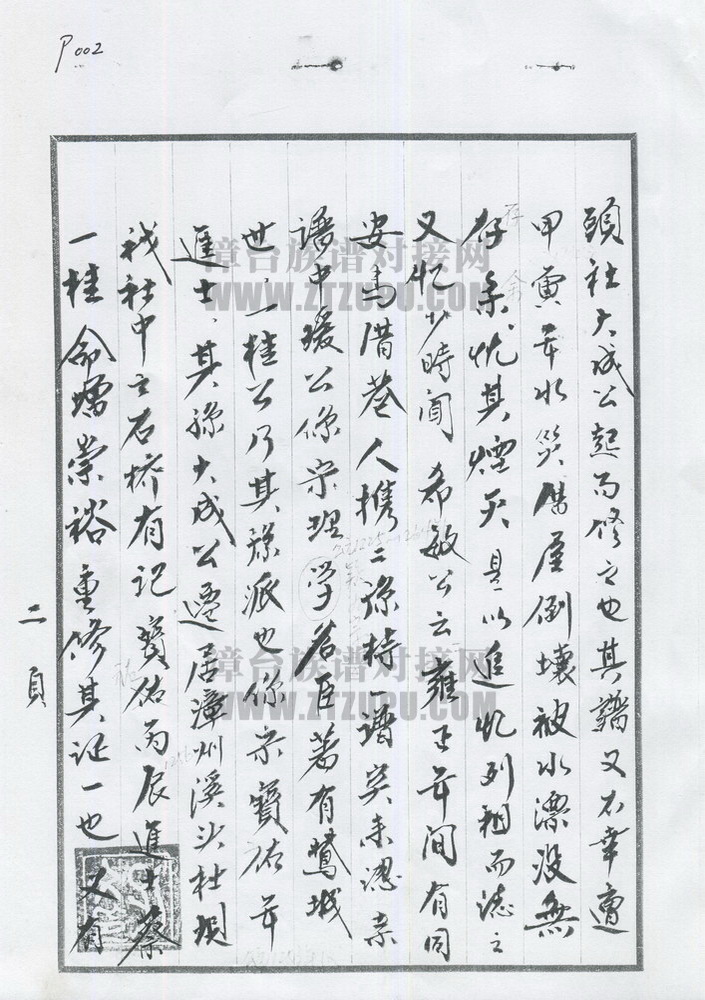 P002
頭社大成公起而修之也其譜又不幸遭
甲寅年水災舊屋倒壞被水漂沒無
存余忧其煙灭是以進忆列祖而誌之
又忆少時闻希敏公云雍正年间有同
安馬借巷人携二孫持一譜笑来認亲
譜中瑗公係宋理学名臣著有鷲城
世一桂公乃其孫派也係宋寶祐年
進士其孫大成公遷居漳州溪头社現
我社中之石桥有记寶佑丙辰進士蔡
一桂命嬬崇裕重修其证一也又有
二頁
漳台族谱对接网
WWW.ZTZUPU.COM
漳台族谱对接网
WWW.ZTZUPU.COM